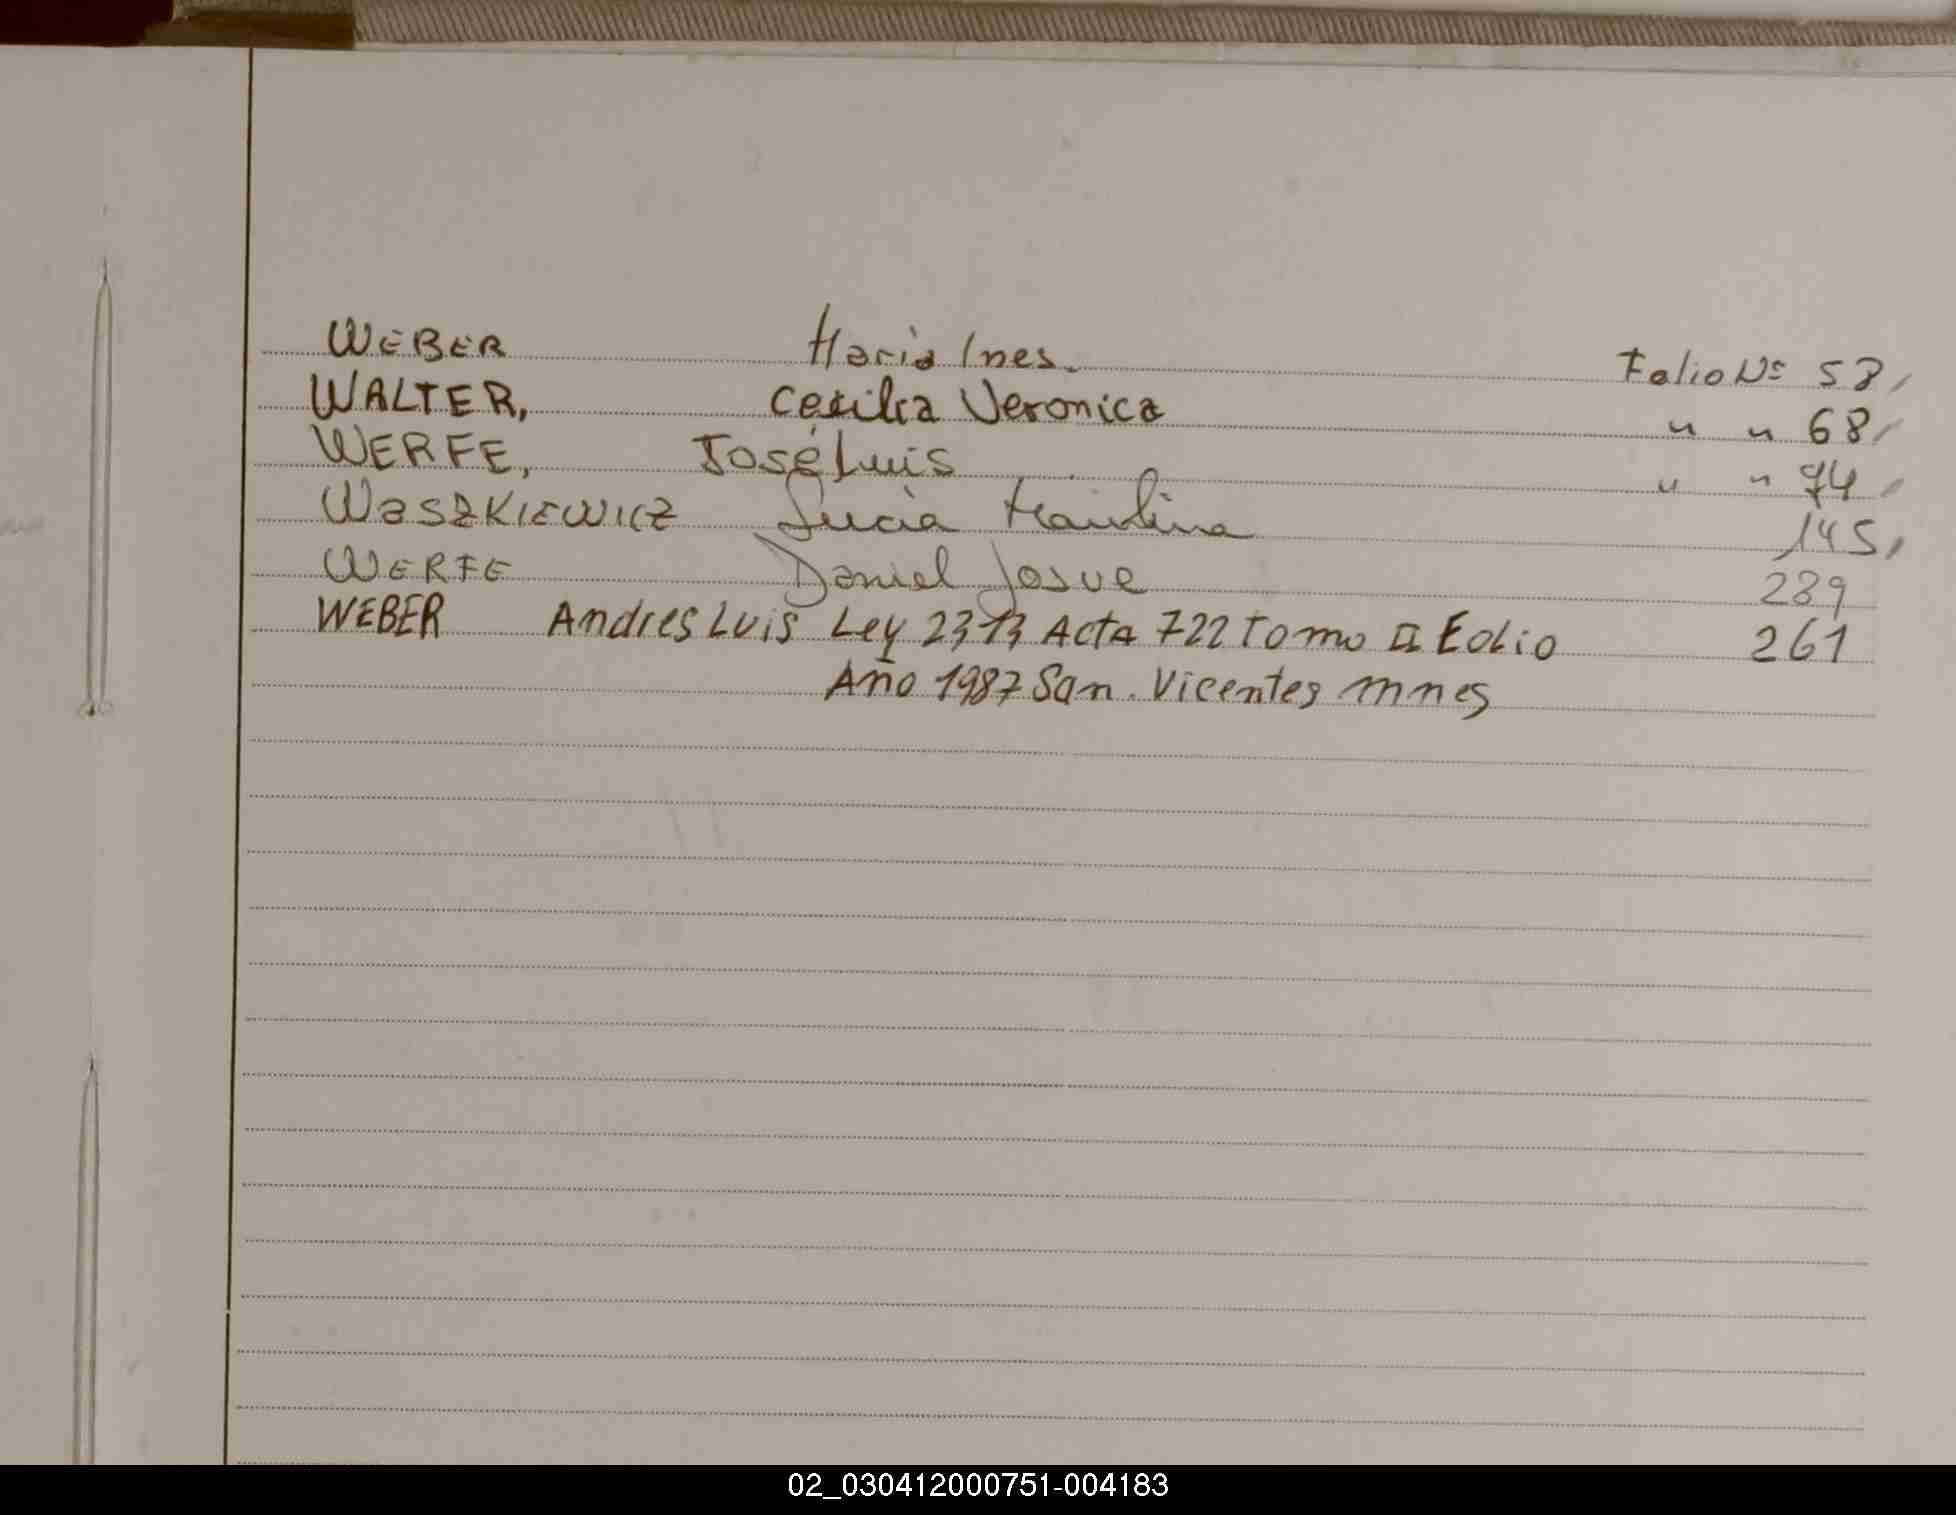 WEBER Maria Ines. Folio Nº 58,
WALTER, Cecilia Veronica " " 68,
WERFE, José Luis " " 74,
WaSZKIEWICZ Lucia 145,
WERFE Daniel Josue 239
WEBER Andres Luis Ley 2373 Acta 722 Tomo II Folio 261
Año 1987 San. Vicentes mnes
02_030412000751-004183